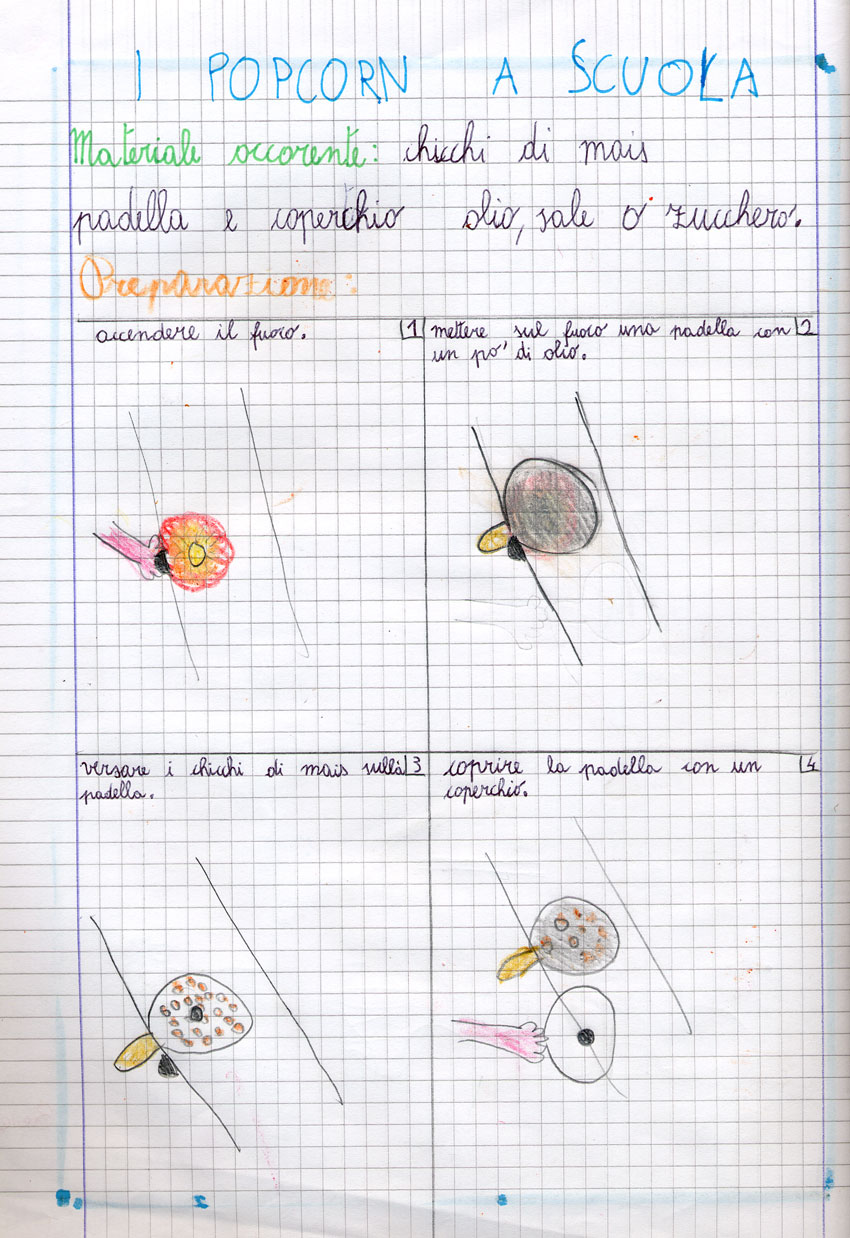 I POPCORN A SCUOLA
Materiale occorente: chicchi di mais
padella e coperchio olio, sale o zucchero.
Preparazione:
accendere il fuoco. 1
mettere sul fuoco una padella con 2
un po' di olio.
versare i chicchi di mais sulla 3
padella.
coprire la padella con un 4
coperchio.